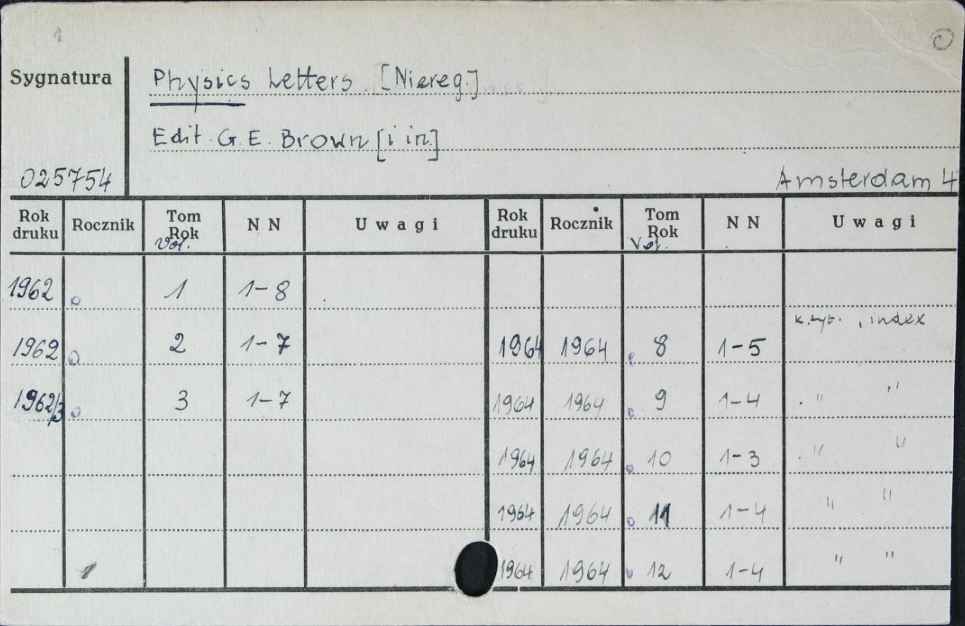 Sygnatura
Physics Letters. [Niereg.]
Edit. G. E. Brown [i in.]
025754
Amsterdam 4
Rok druku Rocznik Tom Rok Vol. N N Uwagi Rok druku Rocznik Tom Rok Vol. N N Uwagi
1962 1 1-8
k. tyt. , index
1962 2 1-7 1964 1964 8 1-5
1962/3 3 1-7 1964 1964 9 1-4 " "
1964 1964 10 1-3 " "
1964 1964 11 1-4 " "
1964 1964 12 1-4 " "